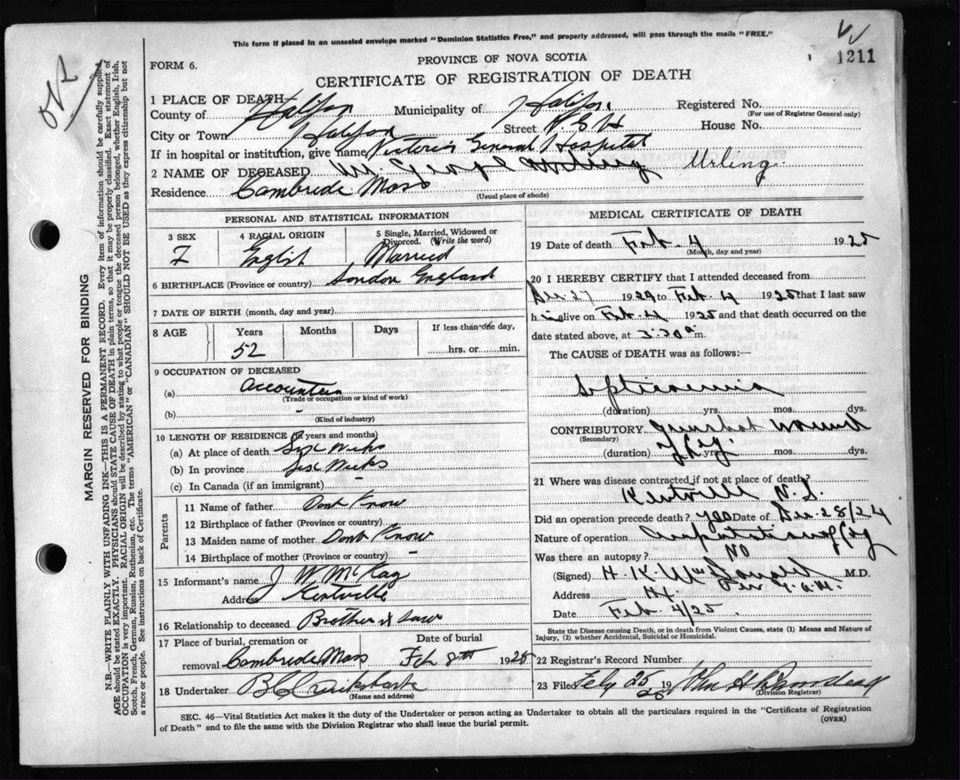 This form if placed in an unsealed envelope marked "Dominion Statistics Free," and properly addressed, will pass through the mails "FREE."
1211
PROVINCE OF NOVA SCOTIA
FORM 6.
CERTIFICATE OF REGISTRATION OF DEATH
1 PLACE OF DEATH
County of Halifax Municipality of Halifax Registered No.
(For use of Registrar General only)
City or Town Halifax Street V.G.H House No.
If in hospital or institution, give name Victoria General Hospital
2 NAME OF DECEASED George Urling
Residence Cambride Mass
(Usual place of abode)
PERSONAL AND STATISTICAL INFORMATION
3 SEX 4 RACIAL ORIGIN 5 Single, Married, Widowed or Divorced. (Write the word)
English Married
6 BIRTHPLACE (Province or country) London England
7 DATE OF BIRTH (month, day and year)
8 AGE Years Months Days If less than one day,
52 hrs. or min.
9 OCCUPATION OF DECEASED
(a)
(Trade or occupation or kind of work)
(b) -
(Kind of industry)
10 LENGTH OF RESIDENCE (in years and months)
(a) At place of death Six
(b) In province Six
(c) In Canada (if an immigrant)
Parents
11 Name of father Dont Know
12 Birthplace of father (Province or country)
13 Maiden name of mother Dont Know
14 Birthplace of mother (Province or country) -
15 Informant's name J W McKay
Address Kentville
16 Relationship to deceased Brother in Law
17 Place of burial, cremation or removal Cambride Mass
Date of burial
Feb 8th 1925
18 Undertaker
(Name and address)
MEDICAL CERTIFICATE OF DEATH
19 Date of death Feb. 4 1925
(Month, day and year)
20 I HEREBY CERTIFY that I attended deceased from
Dec 27 1924 to Feb 4 1925 that I last saw
him alive on Feb 4 1925 and that death occurred on the
date stated above, at 3:30 a m.
The CAUSE OF DEATH was as follows:
Septicaemia
(duration) yrs. mos. dys.
CONTRIBUTORY Gunshot wound
(Secondary)
of leg.
(duration) yrs. mos. dys.
21 Where was disease contracted if not at place of death?
Kentville N.S.
Did an operation precede death? yes Date of Dec. 28/24
Nature of operation Amputation of leg
Was there an autopsy? No
(Signed) H. K. McDonald M.D.
Address Hx
Date Feb 4/25.
State the Disease causing Death, or in death from Violent Causes, state (1) Means and Nature of Injury, (2) whether Accidental, Suicidal or Homicidal.
22 Registrar's Record Number
23 Filed Feby 25 19 25 John H
(Division Registrar)
SEC. 46—Vital Statistics Act makes it the duty of the Undertaker or person acting as Undertaker to obtain all the particulars required in the "Certificate of Registration
of Death" and to file the same with the Division Registrar who shall issue the burial permit.
(OVER)
MARGIN RESERVED FOR BINDING
N.B.—WRITE PLAINLY WITH UNFADING INK—THIS IS A PERMANENT RECORD. Every item of information should be carefully supplied.
AGE should be stated EXACTLY. PHYSICIANS should STATE CAUSE OF DEATH in plain terms, so that it may be properly classified. Exact statement of
OCCUPATION is very important. RACIAL ORIGIN will be described by stating to what people or tongue the deceased person belonged, whether English, Irish,
Scotch, French, German, Russian, Ruthenian, etc. The terms "AMERICAN" or "CANADIAN" SHOULD NOT BE USED as they express citizenship but not
a race or people. See instructions on back of Certificate.